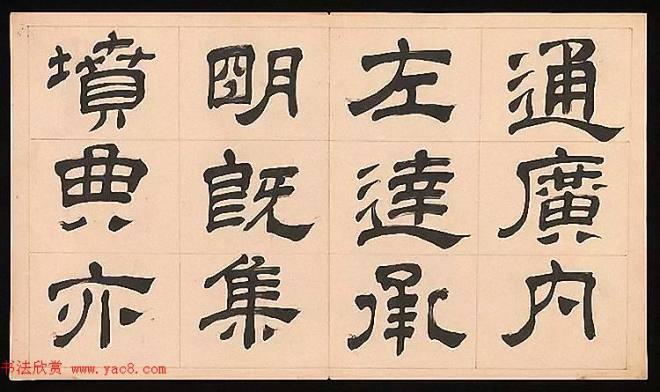 通廣内
左達承
明既集
墳典亦
书法欣赏 www.yac8.com